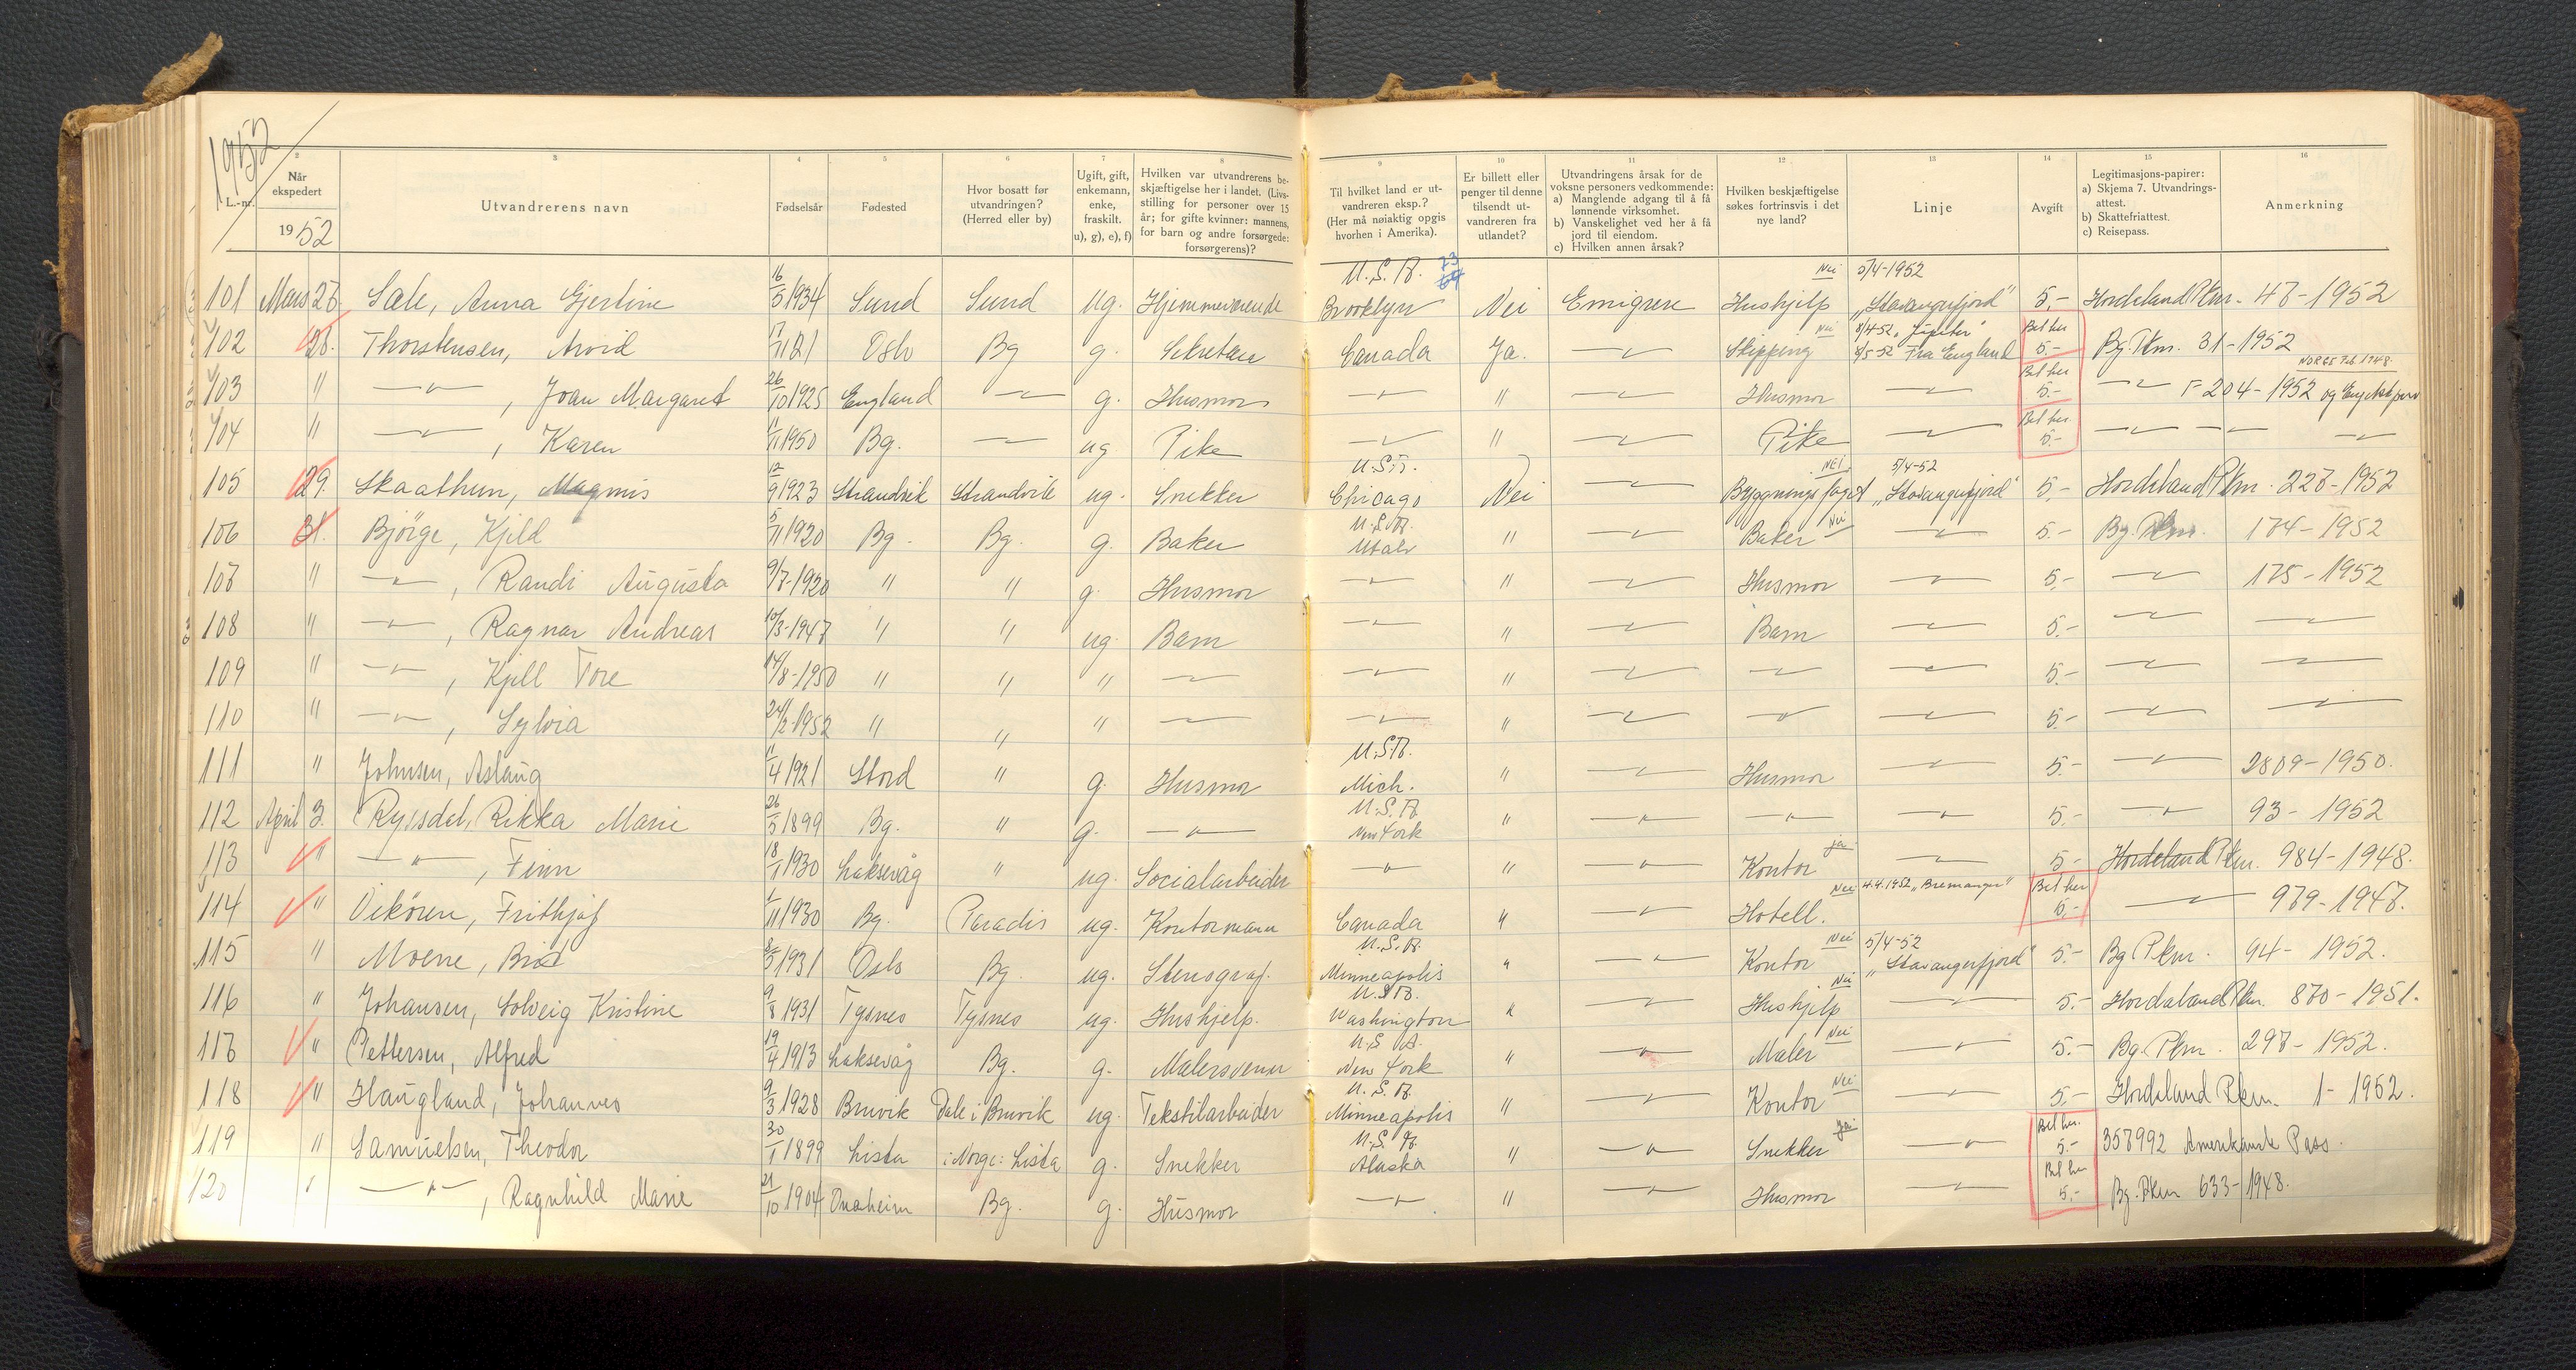 1952
L.-nr.
2
Når ekspedert
1952
3
Utvandrerens navn
4
Fødselsår
5
Fødested
6
Hvor bosatt før utvandringen? (Herred eller by)
7
Ugift, gift, enkemann, enke, fraskilt. u), g), e), f)
8
Hvilken var utvandrerens beskjæftigelse her i landet. (Livsstilling for personer over 15 år; for gifte kvinner: mannens, for barn og andre forsørgede: forsørgerens)?
9
Til hvilket land er utvandreren eksp.? (Her må nøiaktig opgis hvorhen i Amerika).
10
Er billett eller penger til denne tilsendt utvandreren fra utlandet?
11
Utvandringens årsak for de voksne personers vedkommende: a) Manglende adgang til å få lønnende virksomhet. b) Vanskelighet ved her å få jord til eiendom. c) Hvilken annen årsak?
12
Hvilken beskjæftigelse søkes fortrinsvis i det nye land?
13
Linje
14
Avgift
15
Legitimasjons-papirer: a) Skjema 7. Utvandrings-attest. b) Skattefriattest. c) Reisepass.
16
Anmerkning
101 Mars 26. Sæle, Anna Gjertine 16/5 1934 Sund Sund ug. Hjemmeværende U.S.A. Brooklyn Nei Emigrere Hushjelp Nei 5/4-1952 "Stavangerfjord" 5.- Hordaland Pkm. 47-1952
102 28. Thorstensen, Arvid 17/11 21 Oslo Bg g. Sekretær Canada Ja. -"- Skipping Nei 3/4-52 "Jupiter" 4/5-52 Fra England Bet her 5.- Bg. Pkm. 31-1952
103 " -"-, Joan Margaret 26/10 1925 England -"- g. Husmor -"- " -"- Husmor -"- Bet her 5.- -"- F 204-1952 NORGE 7.6.1948.
104 " -"-, Karen 11/11 1950 Bg. -"- ug Pike -"- " -"- Pike -"- Bet her. 5.- -"- -"- -"-
105 29. Skaathun, Magnus 12/9 1923 Strandvik Strandvik ug. Snekker U.S.A. Chicago Nei -"- Byggningsfaget NEI 5/4-52 "Stavangerfjord" 5.- Hordaland Pkm. 227-1952
106 31. Bjørge, Kjeld 5/11 1920 Bg. Bg. g. Baker U.S.A. Utah " -"- Baker Nei -"- 5.- Bg. Pkm. 174-1952
107 " -"-, Randi Augusta 9/7-1920 " " g. Husmor -"- " -"- Husmor -"- 5.- -"- 175-1952
108 " -"-, Ragnar Andreas 10/3-1947 " " ug Barn -"- " -"- Barn -"- 5.- -"- -"-
109 " -"-, Kjell Tore 14/8-1950 " " " -"- -"- " -"- -"- -"- 5.- -"- -"-
110 " -"-, Sylvia 24/2-1952 " " " -"- -"- " -"- -"- -"- 5.- -"- -"-
111 " Johnsen, Aslaug 11/4 1921 Stord " g. Husmor U.S.A. Mich. " -"- Husmor -"- 5.- -"- 2809-1950.
112 April 3. Ryssdal, Rikka Marie 26/5 1899 Bg. " g. -"- U.S.A. New York " -"- -"- -"- 5.- -"- 93-1952
113 " -"-, Finn 18/1 1930 Laksevåg " ug. Socialarbeider -"- " -"- Kontor ja -"- 5.- Hordaland Pkm. 984-1948.
114 " Vikøren, Frithjof 1/11 1930 Bg. Paradis ug. Kontormann Canada " -"- Hotell. Nei 4.4.1952 "Bremanger" Bet her 5.- -"- 979-1947.
115 " Moene, Brit 8/5 1931 Oslo Bg. ug. Stenograf. U.S.A. Minneapolis " -"- Kontor Nei 5/4-52 "Stavangerfjord" 5.- Bg Pkm. 94-1952.
116 " Johansen, Solveig Kristine 9/8 1931 Tysnes Tysnes ug. Hushjelp. U.S.A. Washington " -"- Hushjelp Nei -"- 5.- Hordaland Pkm. 870-1951.
117 " Pettersen, Alfred 19/4 1913 Laksevåg Bg. g. Malersvenn U.S.A. New York " -"- Maler Nei -"- 5.- Bg. Pkm. 297-1952.
118 " Haugland, Johannes 9/3 1928 Bruvik Dale i Bruvik ug. Tekstilarbeider U.S.A. Minneapolis " -"- Kontor Nei -"- 5.- Hordaland Pkm. 1-1952.
119 " Samuelsen, Theodor 30/1 1899 Lista i Norge: Lista g. Snekker U.S.A. Alaska " -"- Snekker Ja -"- Bet her. 5.- 357992 Amerikansk Pass.
120 " -"-, Ragnhild Marie 21/10 1904 Onarheim Bg. g. Husmor -"- " -"- Husmor -"- Bet her 5.- Bg. Pkm 633-1948.